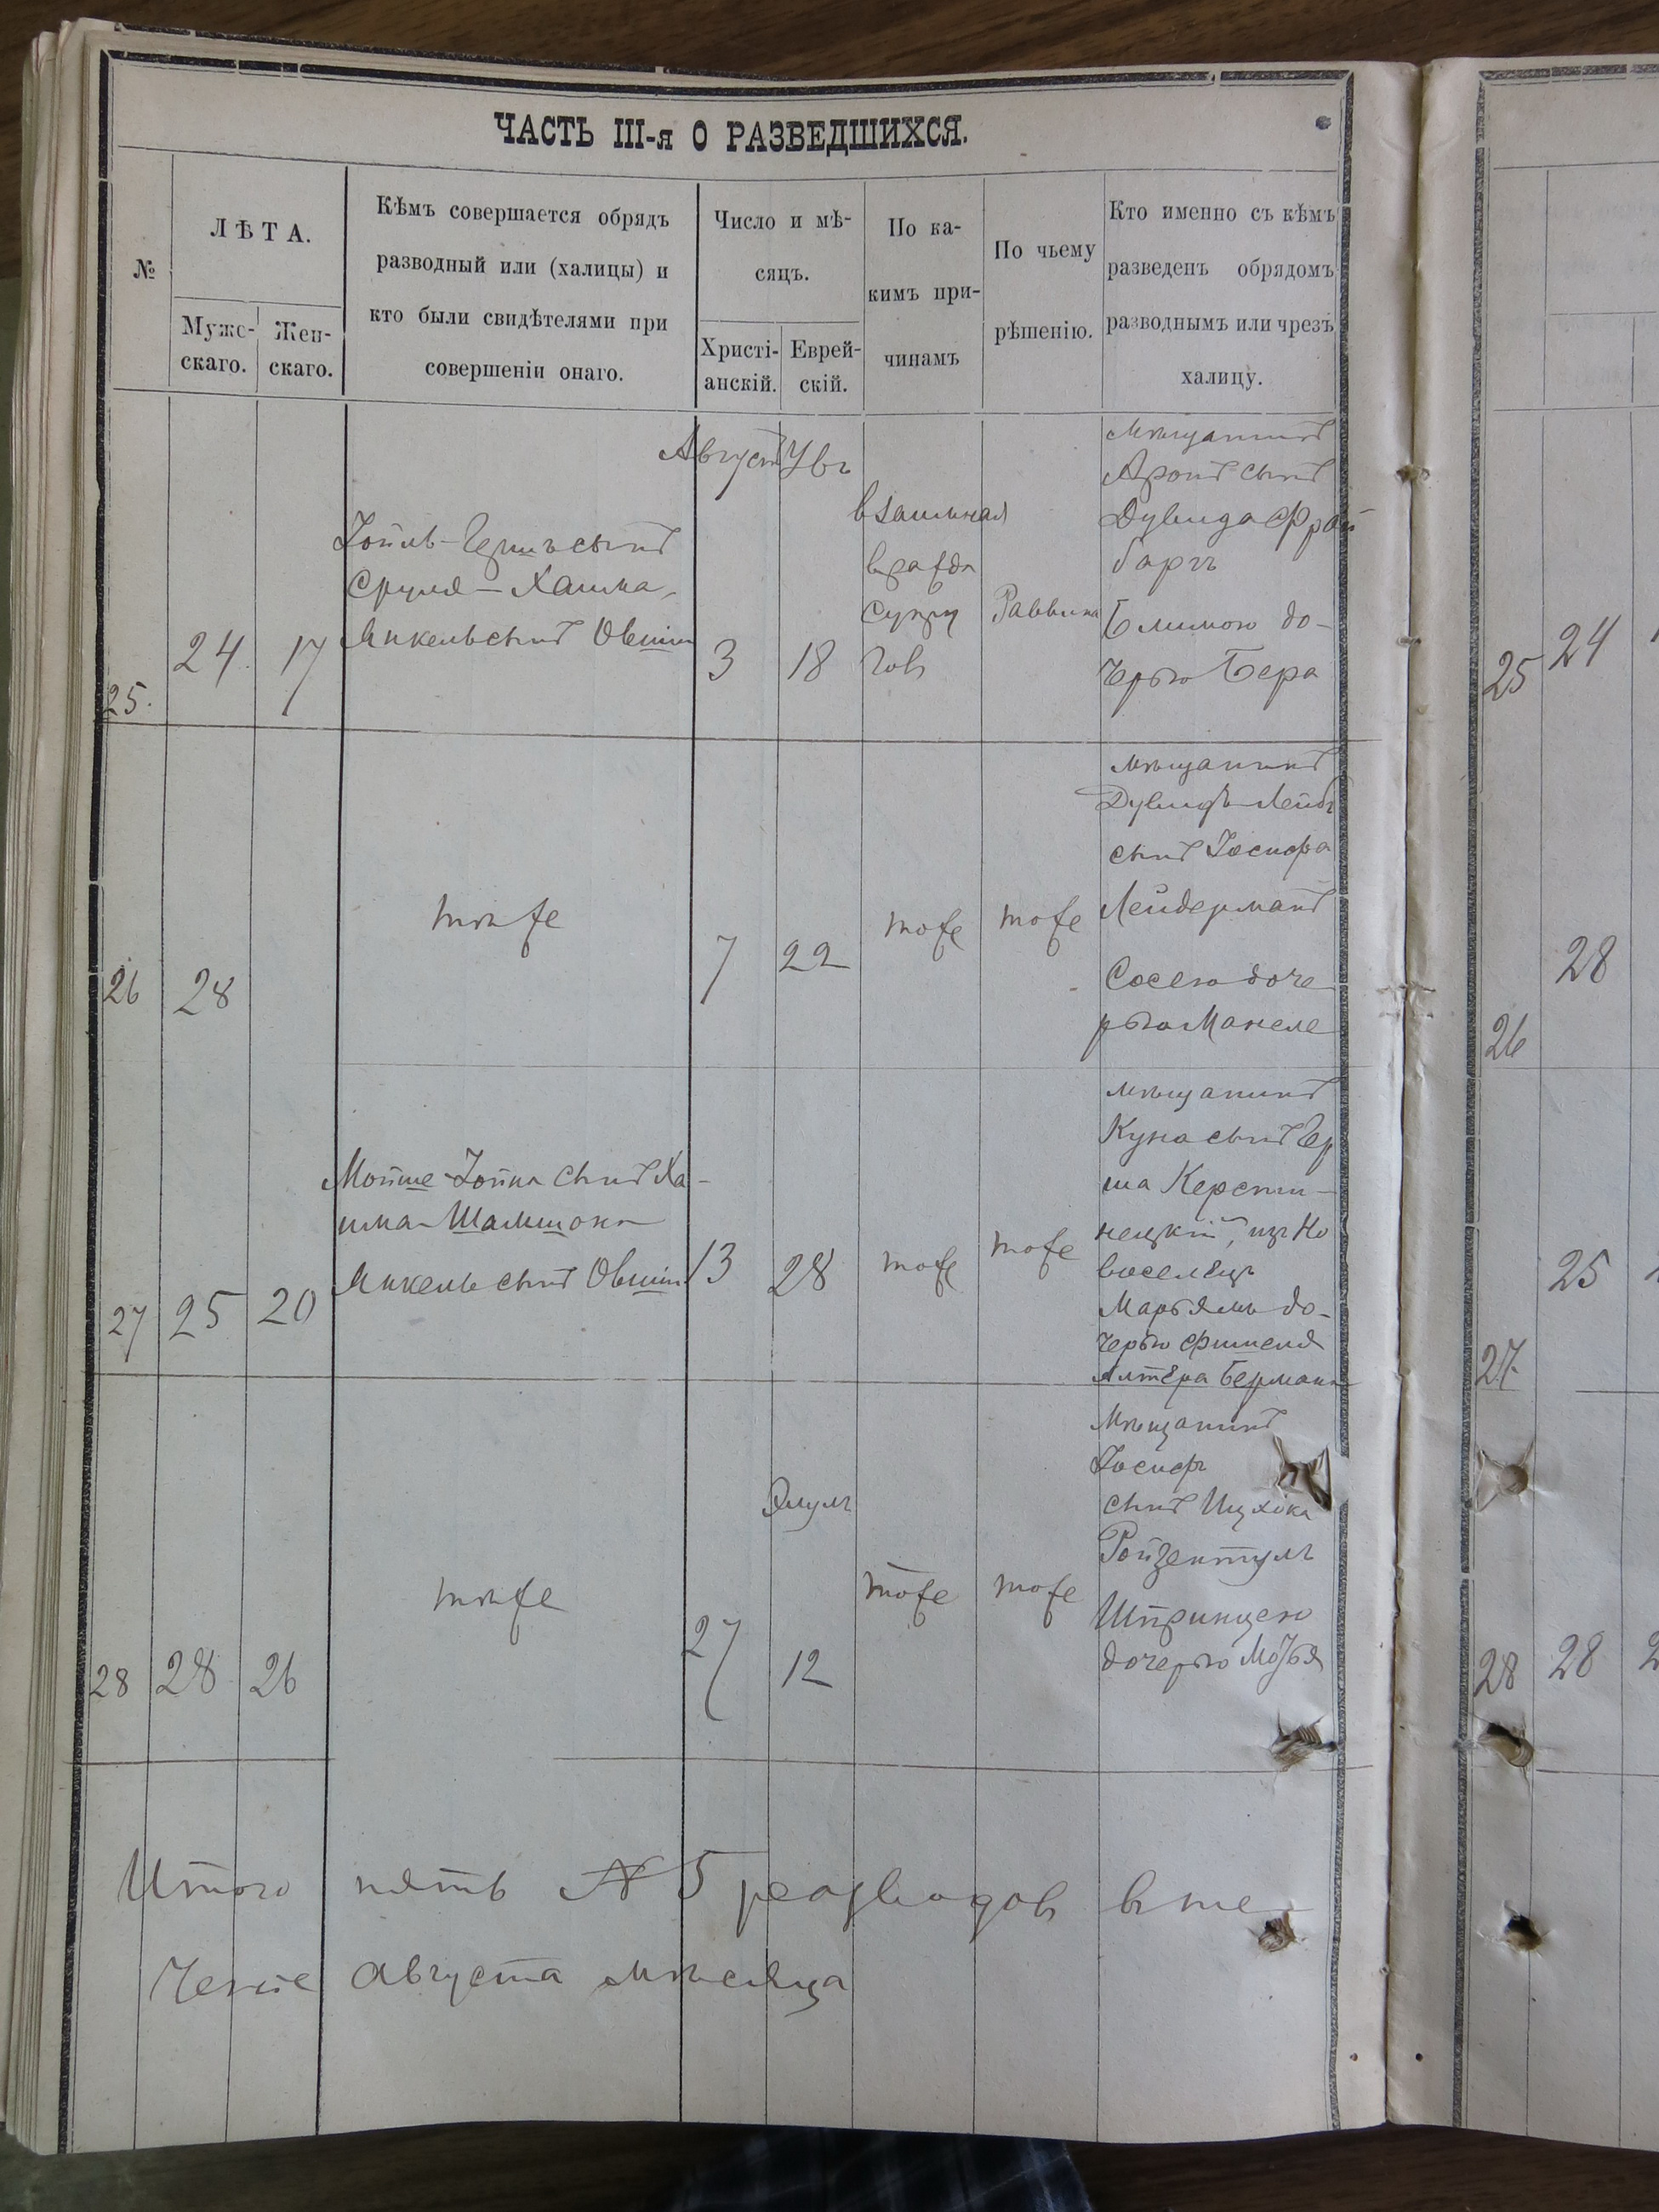 ЧАСТЬ III-я О РАЗВЕДШИХСЯ.
№
ЛѢТА.
Мужс-
скаго.
Жен-
скаго.
Кѣмъ совершается обрядъ
разводный или (халицы) и
кто были свидѣтелями при
совершеніи онаго.
Число и мѣ-
сяцъ.
Христі-
анскій.
Еврей-
скій.
По ка-
кимъ при-
чинамъ
По чьему
рѣшенію.
Кто именно съ кѣмъ
разведенъ обрядомъ
разводнымъ или чрезъ
халицу.
25.
24
17
Іойль-Гершъ сынъ
Сруля-Хаима,
Янкель сынъ Овшія
Августъ
3
18
взаимная
вражда
супру
говъ
Раввина
мѣщанинъ
Аронъ сынъ
Дувида Фрай
бергъ
до-
черью Бера
26
28
тоже
7
22
тоже
тоже
мѣщанинъ
Дувидъ-Лейбъ
сынъ Іосифа
Лейдерманъ
Сосею доче
рью
27
25
20
Мойше-Іойна сынъ Ха-
има-Шамшона
Янкель сынъ Овшія
13
28
тоже
тоже
мѣщанинъ
Куна сынъ Гер
ша
изъ Но
воселецъ
Марьямъ до-
черью Фишеля
Алтера Бермана
28
28
26
тоже
27
Элулъ
12
тоже
тоже
Мѣщанинъ
Іосифъ
сынъ Ицхока
Ройзентулъ
Шпринцею
дочерью
Итого пять № 5 разводовъ въ те
ченіе августа мѣсяца
25
24
26
28
27.
25
28
28